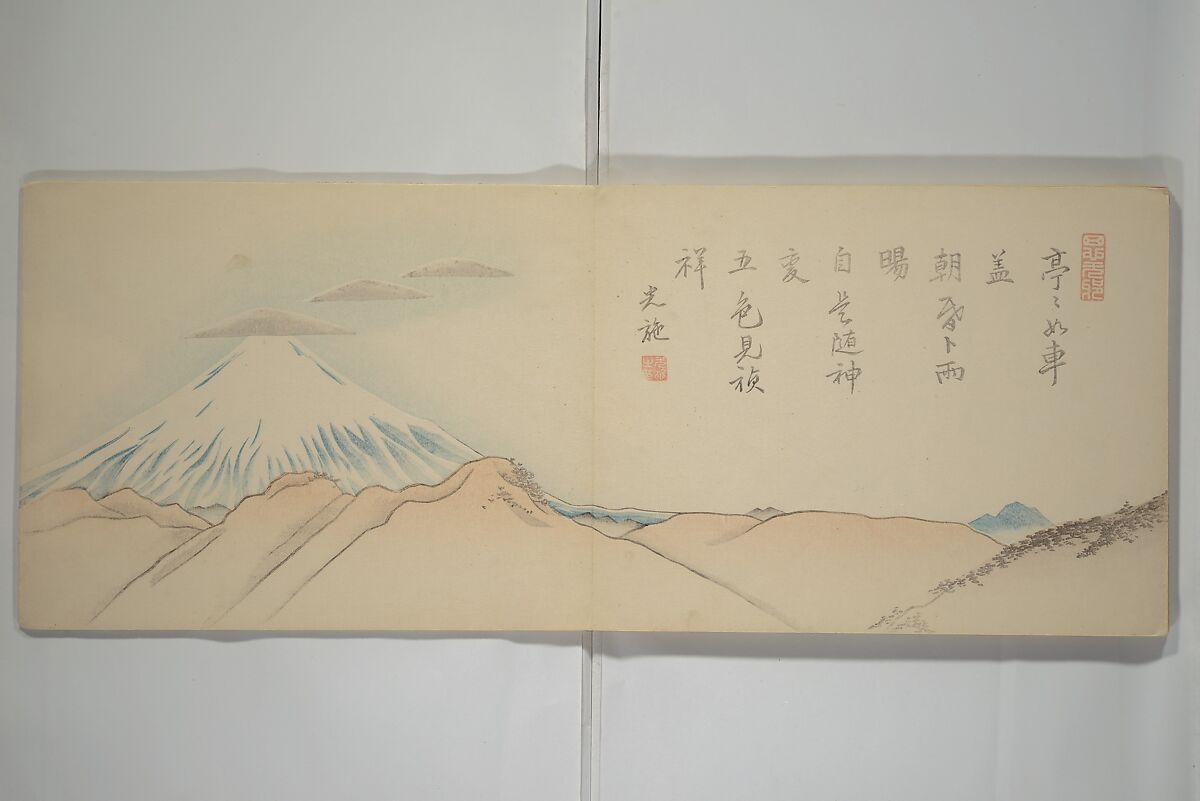 亭〻如車
盖
朝昏卜雨
暘
自是随神
変
五色見禎
祥
光施